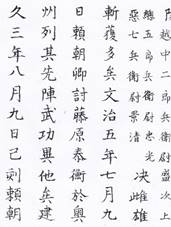 越中二郎兵衛尉盛次上
總五郎兵衛尉忠光
惡七兵衛尉景清 決雌雄
斬獲多矣文治五年七月九
日賴朝卿討藤原泰衡於奥
州列其先陣武功異他矣建
久三年八月九日己刻賴朝